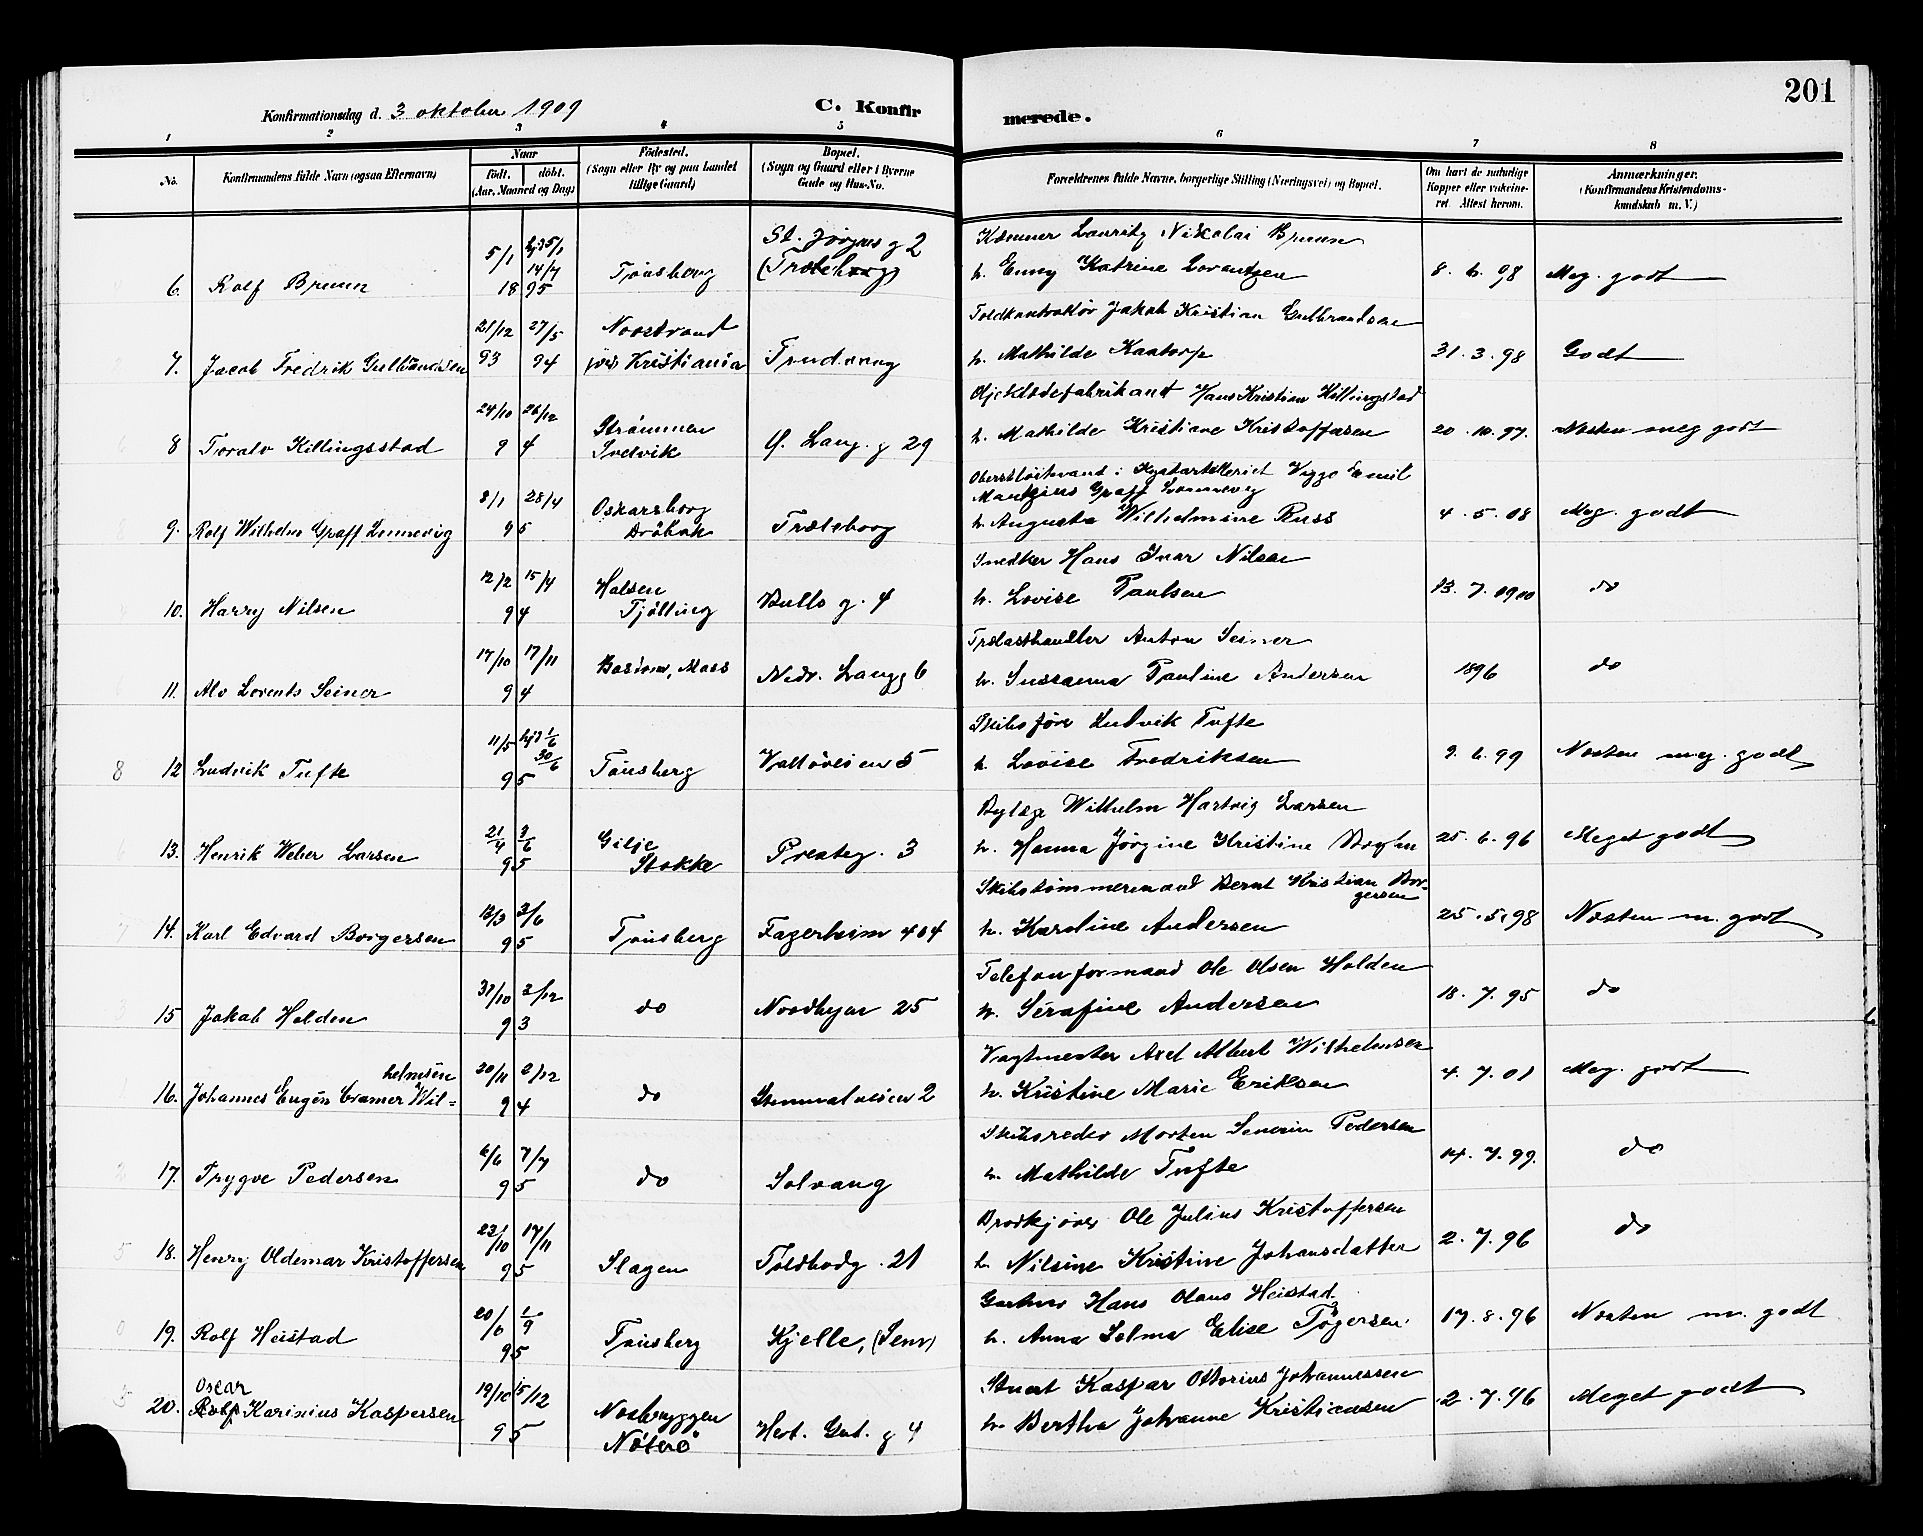 201
Konfirmationsdag d. 3 oktober 1909
C. Konfir merede.
1 2 3 4 5 6 7 8
No.
Konfirmandens fulde Navn (ogsaa Efternavn)
Naar
født. døbt.
(Aar, Maaned og Dag)
Fødested.
(Sogn eller By og paa Landet
tillige Gaard)
Bopæl.
(Sogn og Gaard eller i Byerne
Gade og Hus-No.
Forældrenes fulde Navne, borgerlige Stilling (Næringsvei) og Bopæl.
Om havt de naturlige
Kopper eller vaksine-
ret. Attest herom.
Anmærkninger.
(Konfirmandens Kristendoms-
kundskab m. V.)
6. Rolf Bruun 5/1 hjd 5/1 14/7 1895 Tønsberg St. Jørgens g 2 (Træleborg)
Kæmner Lauritz Nikolai Bruun
h. Enny Katrine Lorentzen 8. 6. 98 Meg. godt
7. Jacob Fredrik Gulbrandsen 21/12 93 27/5 94 Nordstrand ved Kristiania Trudvang
Toldkontrollør Jakob Kristian Gulbrandsen
h. Mathilde Kaatorp 31. 3. 98 Godt
8 Toralv Killingsstad 24/10 26/12 94 Strømmen Svelvik Ø. Lang. g 29
Oljeklædefabrikant Hans Kristian Killingstad
h. Mathilde Kristiane Kristoffersen 20. 10. 97. Næsten meg godt
9. Rolf Wilhelm Graff Lønnevig 8/1 28/4 95 Oskarsborg Drøbak Træleborg
Oberstløitnand i Kystartilleriet Viggo Emil
Mautzius Graff Lønnevig
h. Augusta Wilhelmine Russ 4. 5. 08 Meg. godt
10. Harry Nilsen 12/2 15/4 94 Halsen Tjølling Bulls g. 4
Snedker Hans Ivar Nilsen
h. Lovise Paulsen 13. 7. 0900 do
11. Alv Lorents Seiner 17/10 17/11 94 Bastøen, Moss Nedr. Langg 6
Trælasthandler Anton Seiner
h. Sussanna Pauline Andersen 1896 do
8 12 Ludvik Tufte 11/5 hjd 1/6 30/6 95 Tønsberg Valløveien 5
Skibsfører Ludvik Tufte
h. Lovise Fredriksen 9. 6. 99 Næsten meg. godt
13. Henrik Weber Larsen 21/4 3/6 95 Gilje Stokke Presteg. 3
Bylæge Wilhelm Hartvig Larsen
h. Hanna Jørgine Kristine 25. 6. 96 Meget godt
14. Karl Edvard Borgersen 12/3 3/6 95 Tønsberg Fagerheim 404
Skibstømmermand Bernt Kristian Bor-
gersen
h. Karoline Andersen 25. 5. 98 Næsten m. godt
15 Jakob Holden 31/10 3/12 93 do Nordbyen 25
Telefonformand Ole Olsen Holden
h. Serafine Andersen 18. 7. 95 do
helmsen
16. Johannes Eugén Cramer Wil= 20/11 2/12 94 do Gummalveien 2
Vagtmester Axel Albert Wilhelmsen
h. Kristine Marie Eriksen 4. 7. 01 Meg. godt
17. Trygve Pedersen 6/6 7/7 95 do Solvang
Skibsreder Morten Severin Pedersen
h. Mathilde Tufte 14. 7. 99. do
18. Henry Oldemar Kristoffersen 23/10 17/11 95 Slagen Toldbodg. 21
Brodkjører Ole Julius Kristoffersen
h. Nilsine Kristine Johansdatter 2. 7. 96 do
19. Rolf Heistad 20/6 1/9 95 Tønsberg Kjelle, (Sem)
Gartner Hans Olaus Heistad
h. Anna Selma Elise Tøgersen 17. 8. 96 Næsten m. godt
Oscar
20. Rolf Karinius Kaspersen 19/10 15/12 95 Nesbryggen Nøterø Hert. Gut. g 4
Stuert Kaspar Ottorius Johannessen
h. Bertha Johanne Kristiansen 2. 7. 96 Meget godt